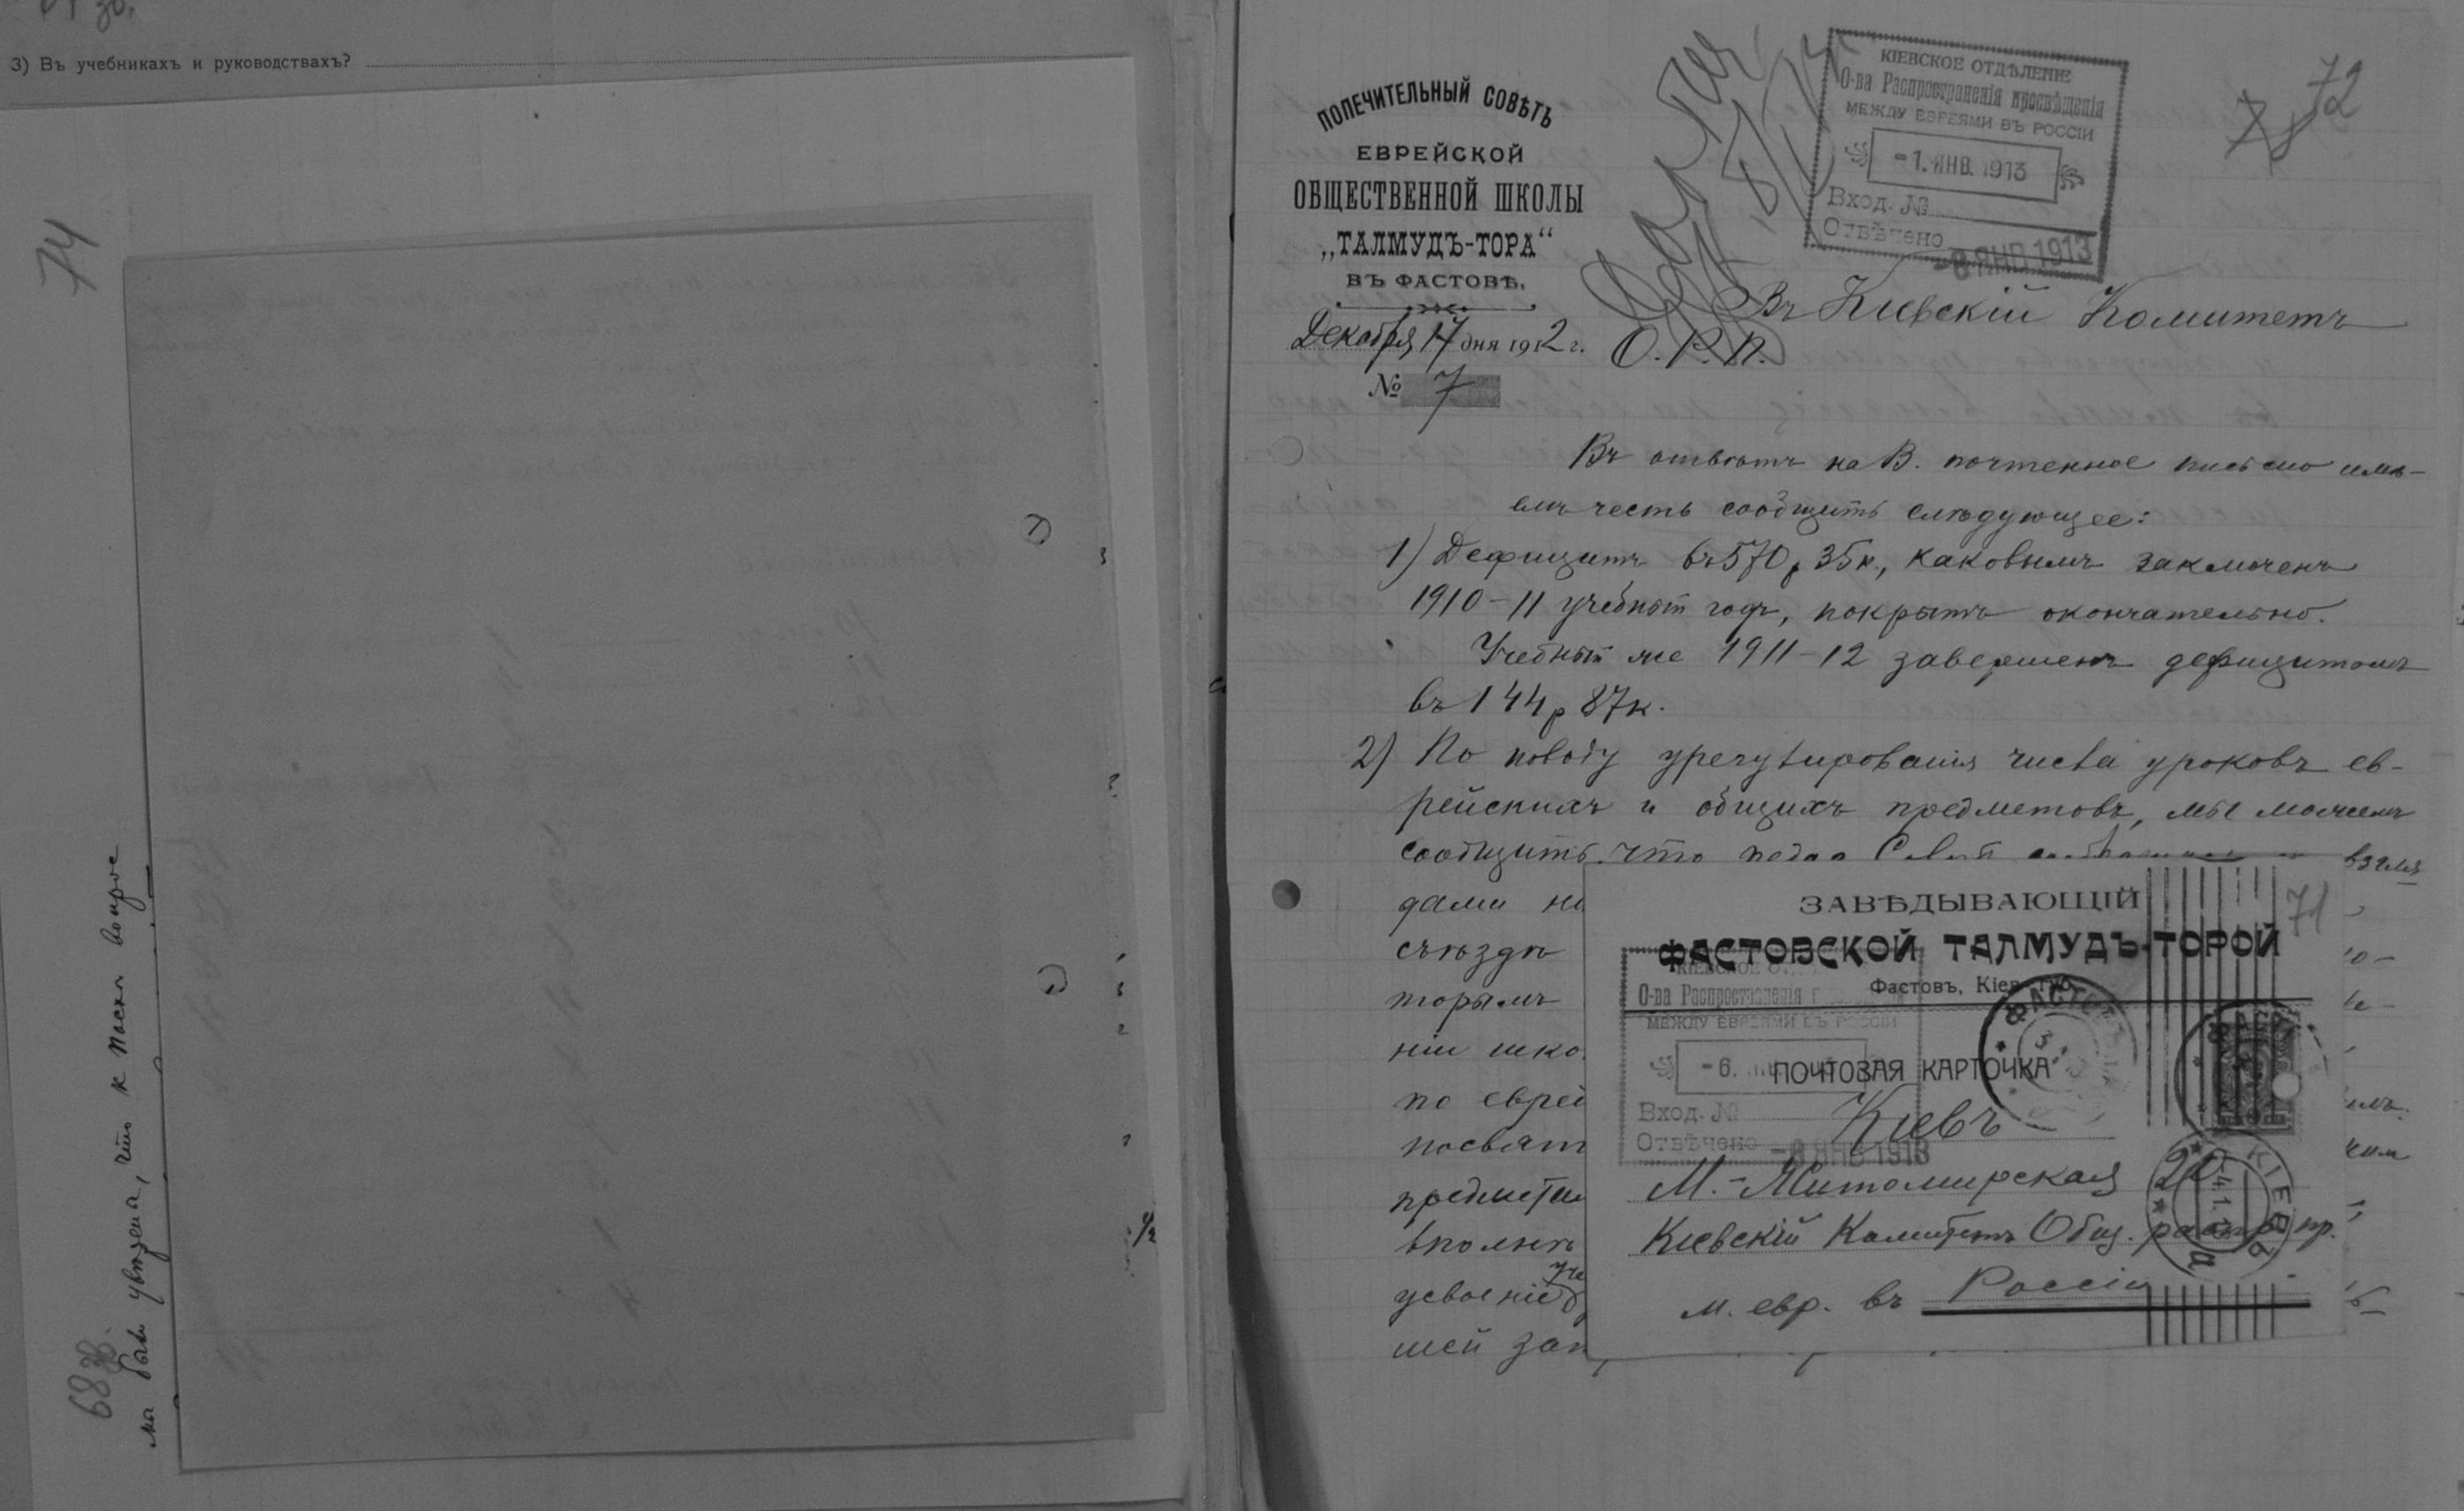 3) Въ учебникахъ и руководствахъ?
74
68 об.
мы были увѣрены, что к
72
ПОПЕЧИТЕЛЬНЫЙ СОВѢТЪ
ЕВРЕЙСКОЙ
ОБЩЕСТВЕННОЙ ШКОЛЫ
„ТАЛМУДЪ-ТОРА“
ВЪ ФАСТОВѢ.
Декабря 17 дня 1912 г.
№ 7
КІЕВСКОЕ ОТДѢЛЕНІЕ
О-ва Распространенія просвѣщенія
МЕЖДУ ЕВРЕЯМИ ВЪ РОССІИ
-1. ЯНВ. 1913
Вход. №
Отвѣчено -8 ЯНВ 1913
Въ Кіевскій Комитетъ
О. Р. П.
Въ отвѣтъ на В. почтенное письмо имѣ-
емъ честь сообщить слѣдующее:
1) Дефицитъ въ 570 р 35 к., каковымъ заключенъ
1910-11 учебный годъ, покрытъ окончательно.
Учебный же 1911-12 завершенъ дефицитомъ
въ 144 р 87 к.
2) По поводу урегулированія числа уроковъ ев-
рейскихъ и общихъ предметовъ, мы можемъ
сообщить, что взгля
дами
съѣздѣ
торымъ
ніи шко
по еврей
посвят
предмета
вполнѣ
усвоеніе
шей зап
71
ЗАВѢДЫВАЮЩІЙ
ФАСТОВСКОЙ ТАЛМУДЪ-ТОРОЙ
Фастовъ, Кіев. губ.
О-ва Распространенія
МЕЖДУ ЕВРЕЯМИ ВЪ РОССІИ
-6.
Вход. №
Отвѣчено -8 ЯНВ 1913
ПОЧТОВАЯ КАРТОЧКА
ФАСТОВЪ
Кіевъ
М.-Житомирская 20
КІЕВЪ
Кіевскій Комитетъ Общ. распр. пр.
м. евр. въ Россіи